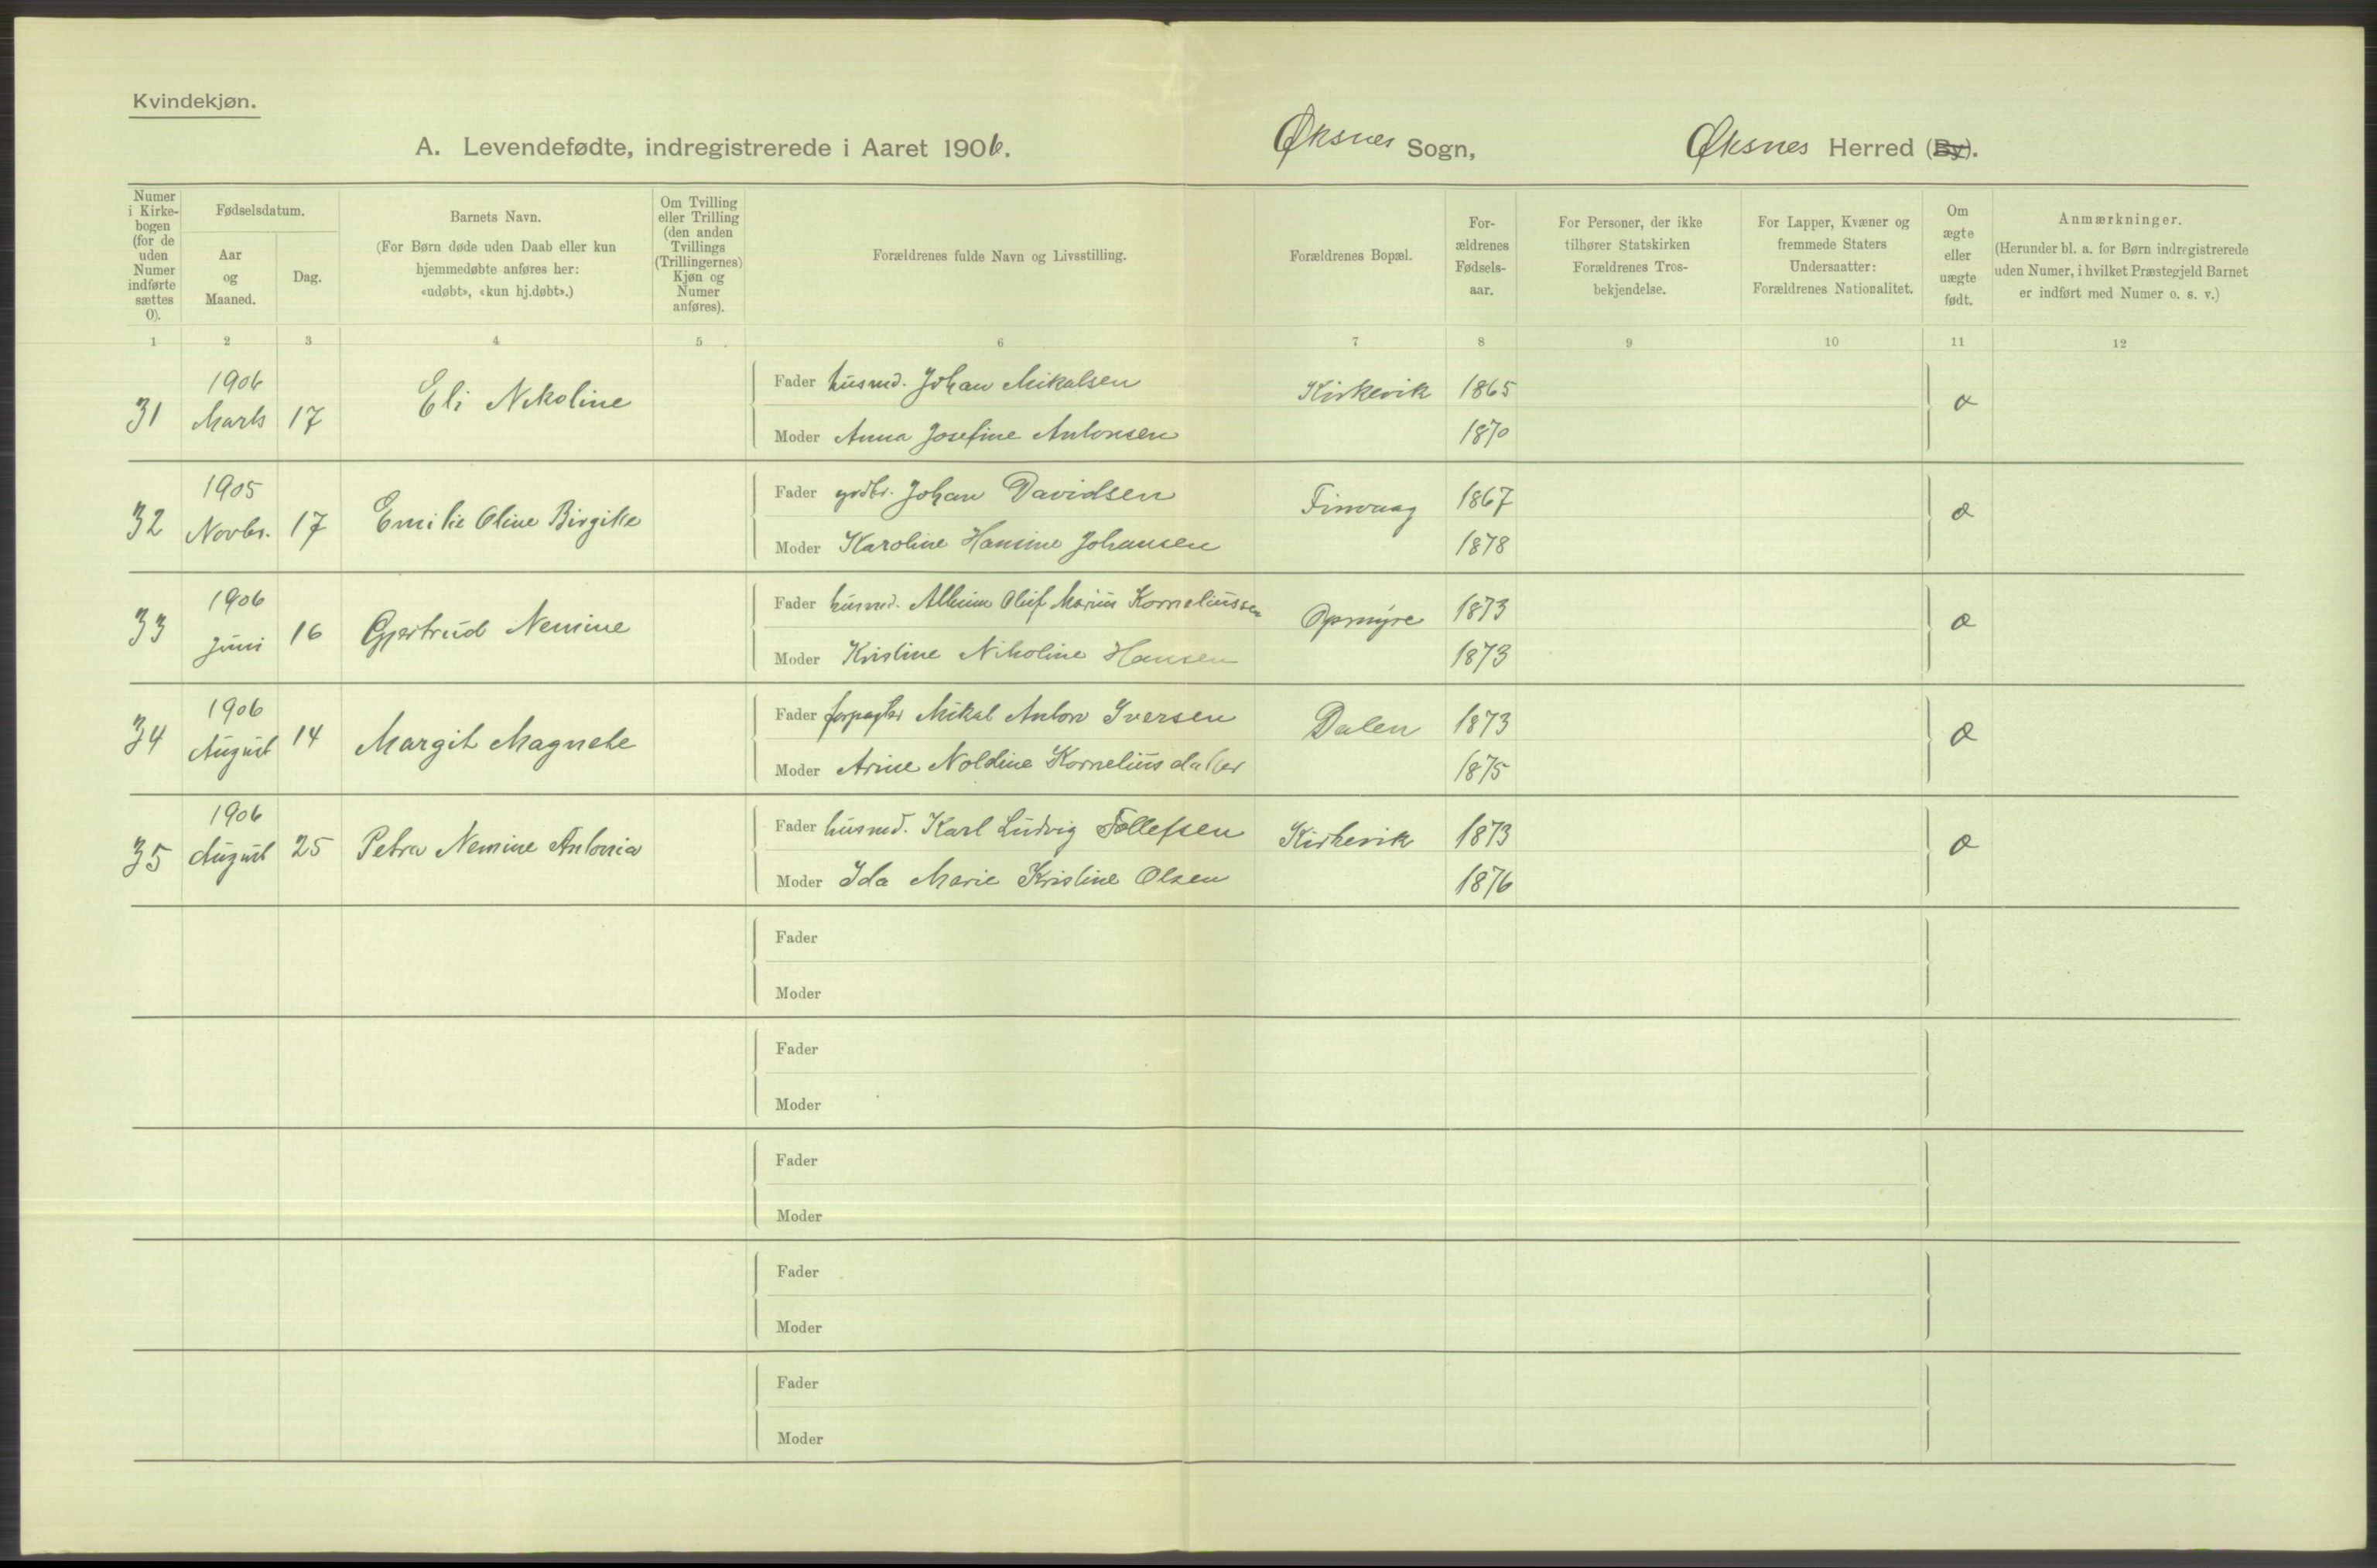 Kvindekjøn.
A. Levendefødte, indregistrerede i Aaret 1906.
Øksnes Sogn,
Øksnes Herred (By).
Numer i Kirkebogen (for de uden Numer indførte sættes 0).
Fødselsdatum.
Aar og Maaned.
Dag.
Barnets Navn.
(For Børn døde uden Daab eller kun
hjemmedøbte anføres her:
«udøbt», «kun hj.døbt».)
Om Tvilling
eller Trilling
(den anden
Tvillings
(Trillingernes)
Kjøn og
Numer
anføres).
Forældrenes fulde Navn og Livsstilling.
Forældrenes Bopæl.
For-
ældrenes
Fødsels-
aar.
For Personer, der ikke
tilhører Statskirken
Forældrenes Tros-
bekjendelse.
For Lapper, Kvæner og
fremmede Staters
Undersaatter:
Forældrenes Nationalitet.
Om
ægte
eller
uægte
født.
Anmærkninger.
(Herunder bl. a. for Børn indregistrerede
uden Numer, i hvilket Præstegjeld Barnet
er indført med Numer o. s. v.)
1 2 3 4 5 6 7 8 9 10 11 12
31 1906 Marts 17 Eli Nikoline
Fader husmd. Johan Mikalsen Kirkevik 1865 æ
Moder Anna Josefine Antonsen 1870
32 1905 Novbr. 17 Emilie Oline Birgitte
Fader grdbr. Johan Davidsen Finvaag 1867 æ
Moder Karoline Hansine Johansen 1878
33 1906 Juni 16 Gjertrud Nemine
Fader husmd. Oluf Marius Korneliussen 1873 æ
Moder Kristine Nikoline Hansen 1873
34 1906 August 14 Margit Magnete
Fader forpagter Mikal Anton Iversen Dalen 1873 æ
Moder Arine Noldine Korneliusdatter 1875
35 1906 August 25 Petra Nemine Antonia
Fader husmd. Karl Ludvig Tollefsen Kirkevik 1873 æ
Moder Ida Marie Kristine Olsen 1876
Fader
Moder
Fader
Moder
Fader
Moder
Fader
Moder
Fader
Moder